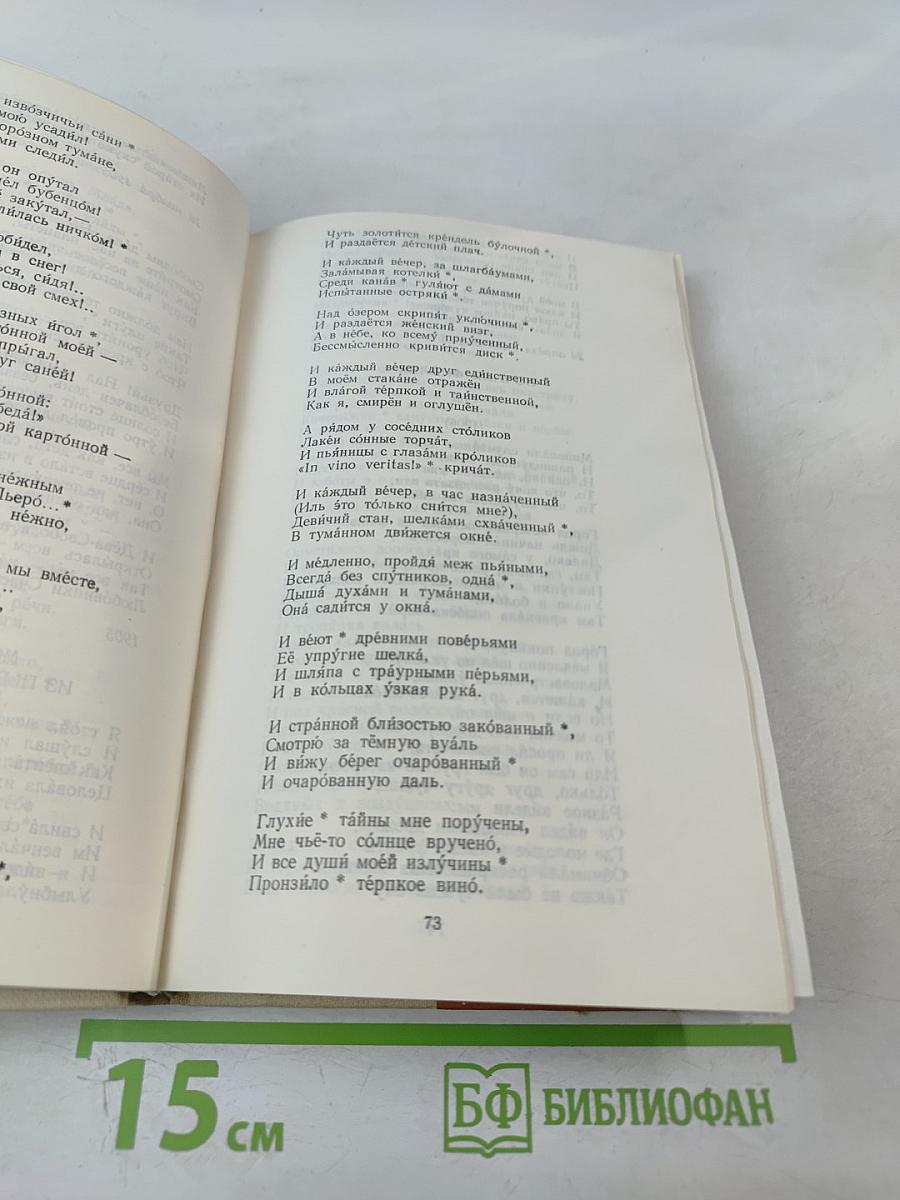 извóзчичьи сáни *
мою́ усади́л!
орóзном тумáне,
ми следи́л.
он опу́тал
ёл бубенцóм!
закýтал,—
ли́лась ничкóм! *
оби́дел,
л в снег!
ься, си́дя!..
свой смех!..
зных и́гол *,
тóнной моéй —
пры́гал,
уг санéй!
óнной:
бедá!»
ой картóнной —
нéжным
Пьерó...*
нéжно,
мы вмéсте,
*,
Чуть золоти́тся крéндель бýлочной *,
И раздаётся дéтский плач.
И кáждый вéчер, за шлагбáумами,
Залáмывая котелки́ *,
Среди канáв * гуля́ют с дáмами
Испы́танные остряки́ *.
Над óзером скрипя́т уклю́чины *,
И раздаётся жéнский визг,
А в нéбе, ко всемý приу́ченный,
Бессмы́сленно криви́тся диск *.
И кáждый вéчер друг еди́нственный
В моём стакáне отражён
И влáгой тéрпкой и таи́нственной,
Как я, смирён и оглушён.
А ря́дом у сосéдних стóликов
Лакéи сóнные торчáт,
И пья́ницы с глазáми крóликов
«In vino veritas!» * кричáт.
И кáждый вéчер, в час назнáченный
(Иль э́то тóлько сни́тся мне?),
Деви́чий стан, шелкáми схвáченный *,
В тумáнном дви́жется окнé.
И мéдленно, пройдя́ меж пья́ными,
Всегдá без спýтников, однá *,
Дышá духáми и тумáнами,
Онá сади́тся у окнá.
И вéют * дрéвними повéрьями
Её упрýгие шелкá,
И шля́па с трáурными пéрьями,
И в кóльцах у́зкая рукá.
И стрáнной бли́зостью закóванный *,
Смотрю́ за тёмную вуáль
И ви́жу бéрег очарóванный *
И очарóванную даль.
Глухи́е * тáйны мне порýчены,
Мне чьё-то сóлнце вручено́,
И все души́ моéй излýчины *
Пронзи́ло * тéрпкое винó.
73
15 см
БФ БИБЛИОФАН